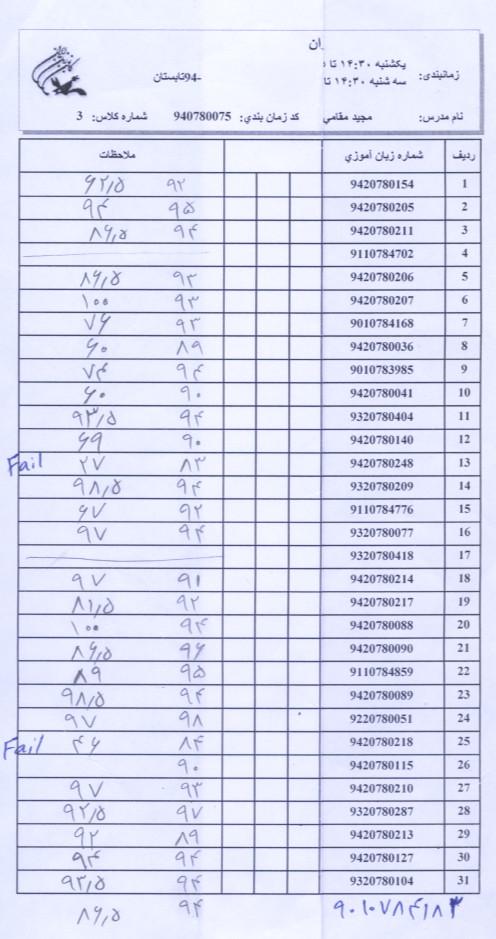 ان
زمانبندی: یکشنبه ۱۴:۳۰ تا
سه شنبه ۱۴:۳۰ تا 94تابستان-
نام مدرس: مجید مقامی کد زمان بندي: 940780075 شماره کلاس: 3
ردیف شماره زبان آموزي ملاحظات
1 9420780154 ۹۲ ۶۲,۵
2 9420780205 ۹۵ ۹۴
3 9420780211 ۹۴ ۸۶,۵
4 9110784702
5 9420780206 ۹۳ ۸۶,۵
6 9420780207 ۹۳ ۱۰۰
7 9010784168 ۹۳ ۷۶
8 9420780036 ۸۹ ۶۰
9 9010783985 ۹۴ ۷۴
10 9420780041 ۹۰ ۶۰
11 9320780404 ۹۴ ۹۳,۵
12 9420780140 ۹۰ ۶۹
13 9420780248 ۸۳ ۲۷ Fail
14 9320780209 ۹۴ ۹۸,۵
15 9110784776 ۹۲ ۶۷
16 9320780077 ۹۴ ۹۷
17 9320780418
18 9420780214 ۹۱ ۹۷
19 9420780217 ۹۲ ۸۱,۵
20 9420780088 ۹۴ ۱۰۰
21 9420780090 ۹۶ ۸۶,۵
22 9110784859 ۹۵ ۸۹
23 9420780089 ۹۴ ۹۸,۵
24 9220780051 ۹۸ ۹۷
25 9420780218 ۸۴ ۴۶ Fail
26 9420780115 ۹۰
27 9420780210 ۹۳ ۹۷
28 9320780287 ۹۷ ۹۲,۵
29 9420780213 ۸۹ ۹۲
30 9420780127 ۹۴ ۹۴
31 9320780104 ۹۴ ۹۳,۵
۹۰۱۰۷۸۴۱۸۳ ۹۴ ۸۶,۵